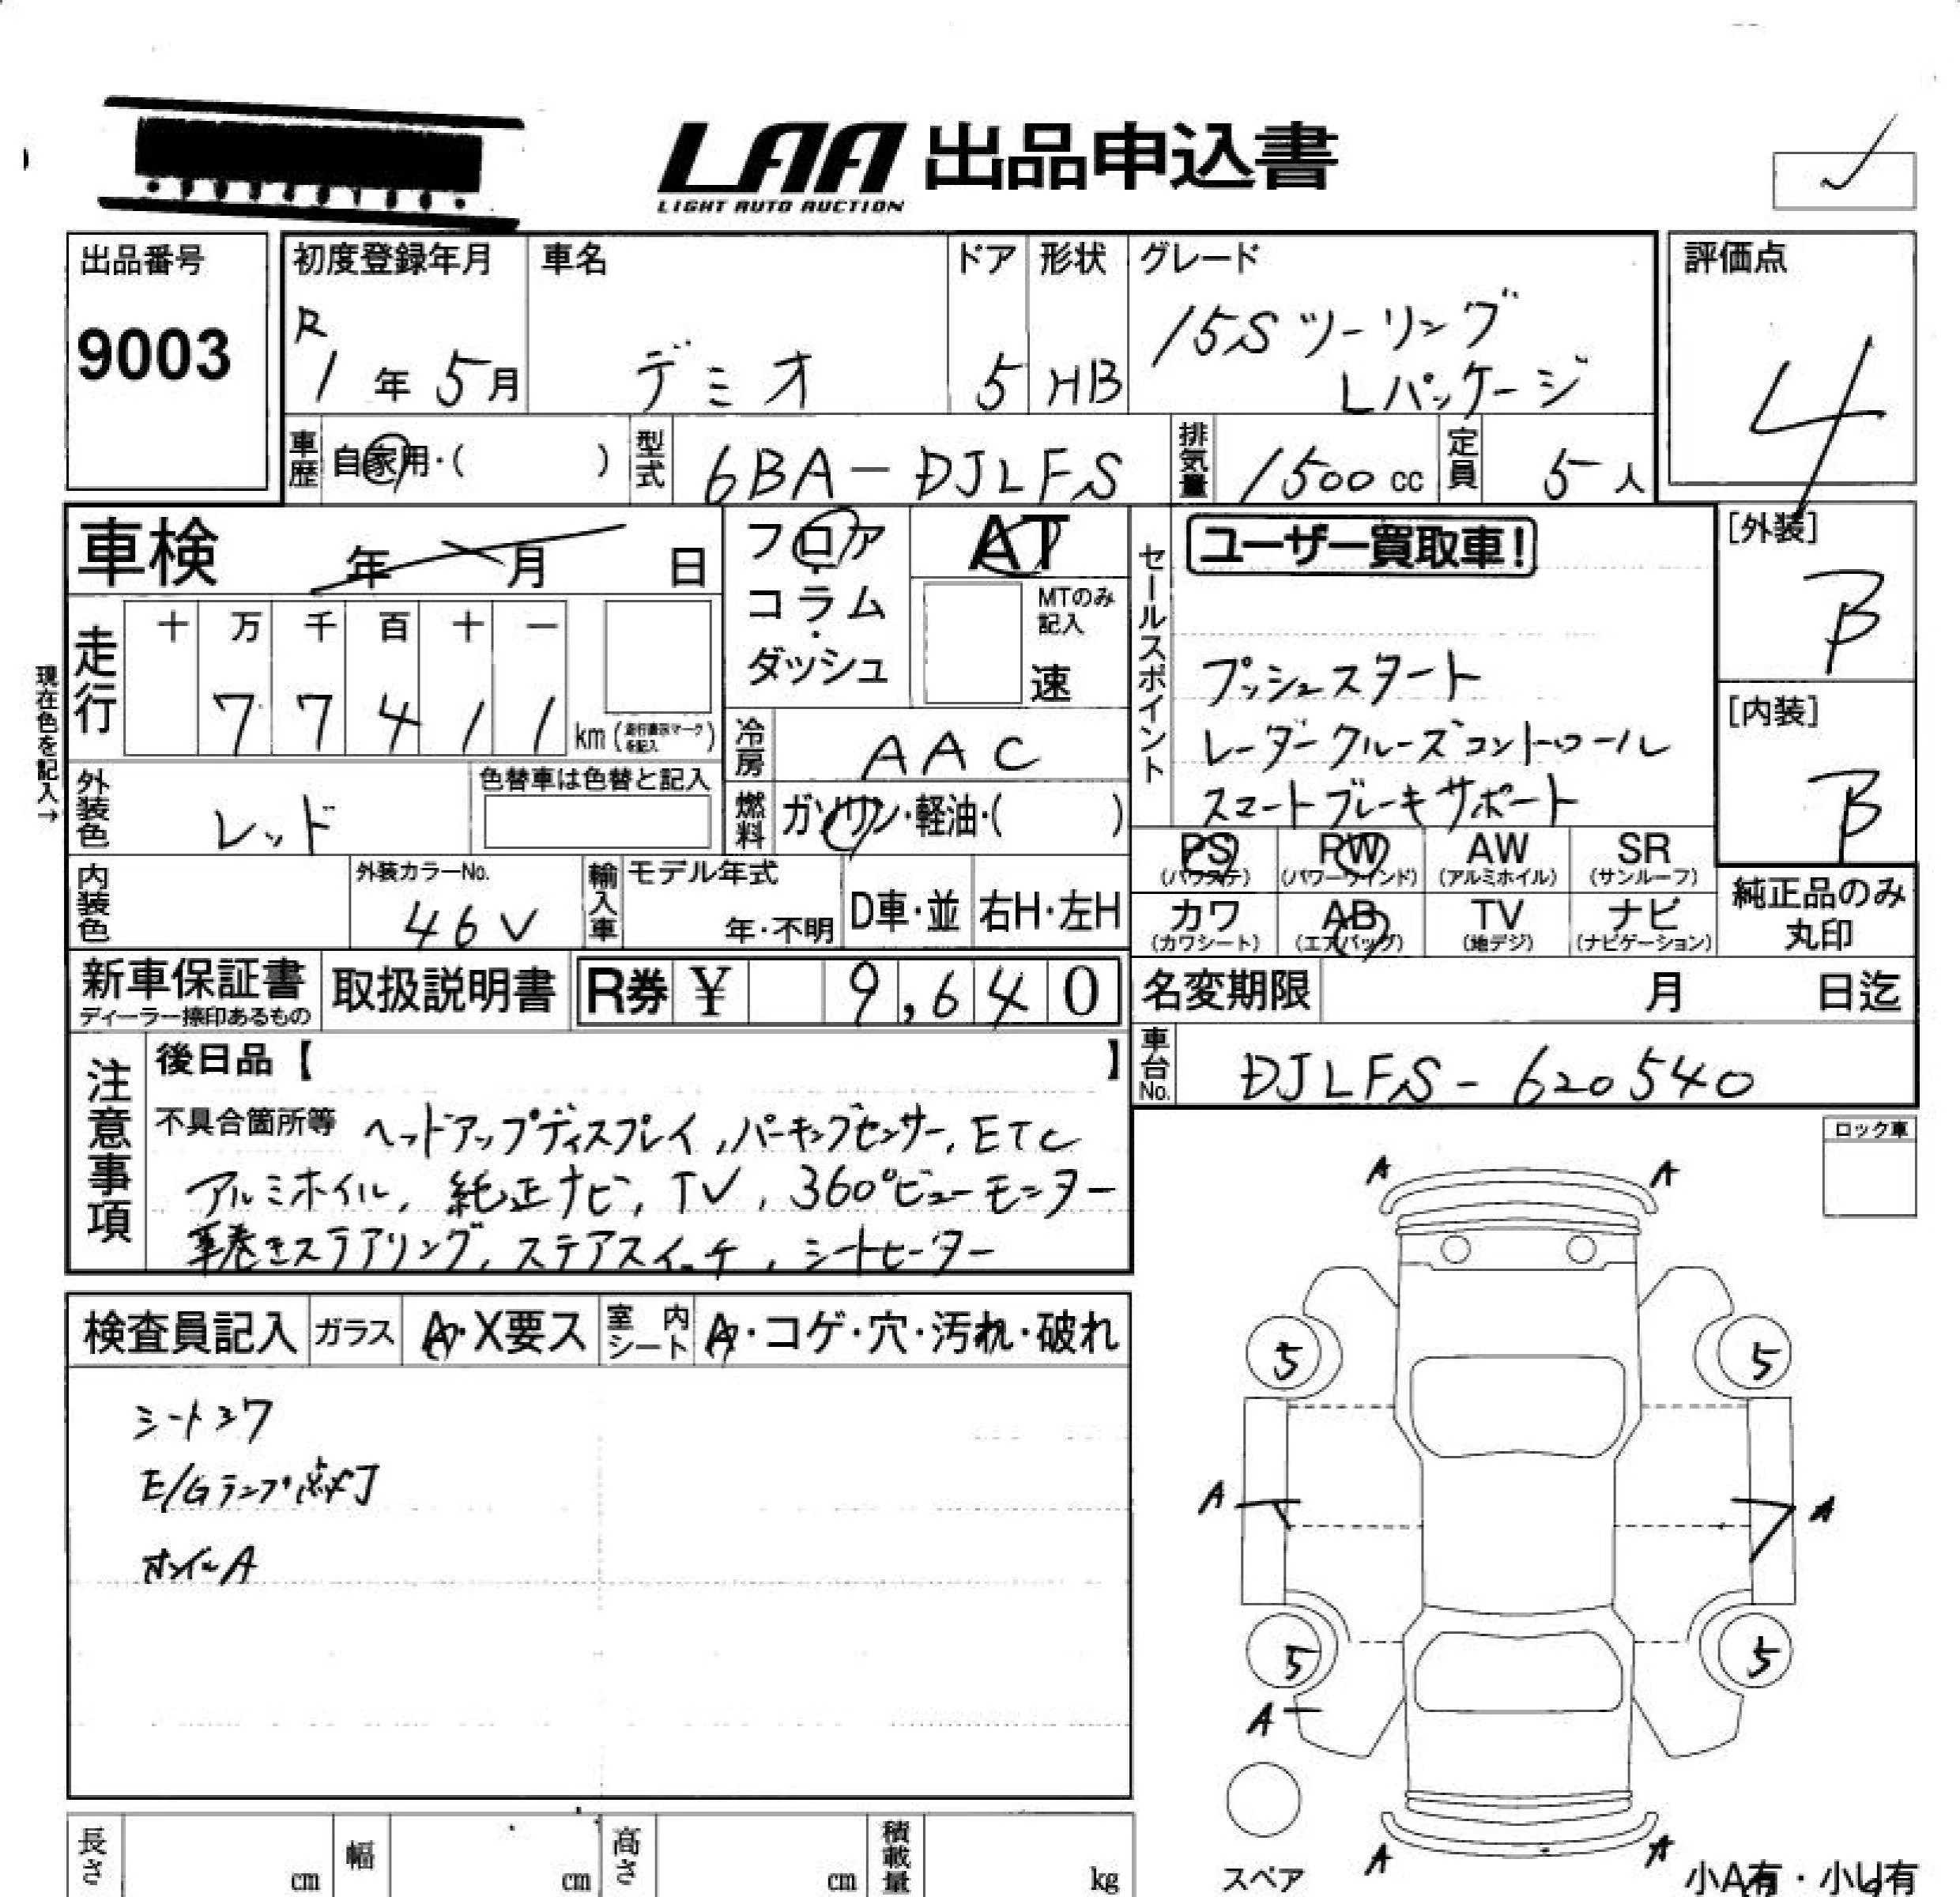 LAA 出品申込書
LIGHT AUTO AUCTION
出品番号
9003
初度登録年月
R
1年5月
車名
デミオ
ドア
5
形状
HB
グレード
15Sツーリング
Lパッケージ
評価点
4
車歴
自家用・( )
型式
6BA-DJLFS
排気量
1500cc
定員
5人
車検 年 月 日
フロア・コラム・ダッシュ
AT
MTのみ記入
速
セールスポイント
ユーザー買取車!
プッシュスタート
レーダークルーズコントロール
スマートブレーキサポート
[外装]
B
[内装]
B
現在色を記入→
走行
十 万 千 百 十 一
7 7 4 1 1 km
冷房
AAC
外装色
レッド
色替車は色替と記入
燃料
ガソリン・軽油・( )
PS (パワステ)
PW (パワーウインド)
AW (アルミホイル)
SR (サンルーフ)
カワ (カワシート)
AB (エアバッグ)
TV (地デジ)
ナビ (ナビゲーション)
純正品のみ
丸印
内装色
外装カラーNo.
46V
輸入車
モデル年式
年・不明
D車・並
右H・左H
新車保証書
ディーラー捺印あるもの
取扱説明書
R券 ¥ 9,640
名変期限 月 日迄
車台No.
DJLFS-620540
注意事項
後日品【 】
不具合箇所等 ヘッドアップディスプレイ,パーキングセンサー,ETC
アルミホイル,純正ナビ,TV,360°ビューモニター
革巻きステアリング,ステアスイッチ,シートヒーター
ロック車
検査員記入
ガラス
A・X要ス
室内シート
A・コゲ・穴・汚れ・破れ
E/Gランプ点灯
A A
5 5
A A
5 5
A
A A
スペア
小A有・小U有
長さ cm
幅 cm
高さ cm
積載量 kg